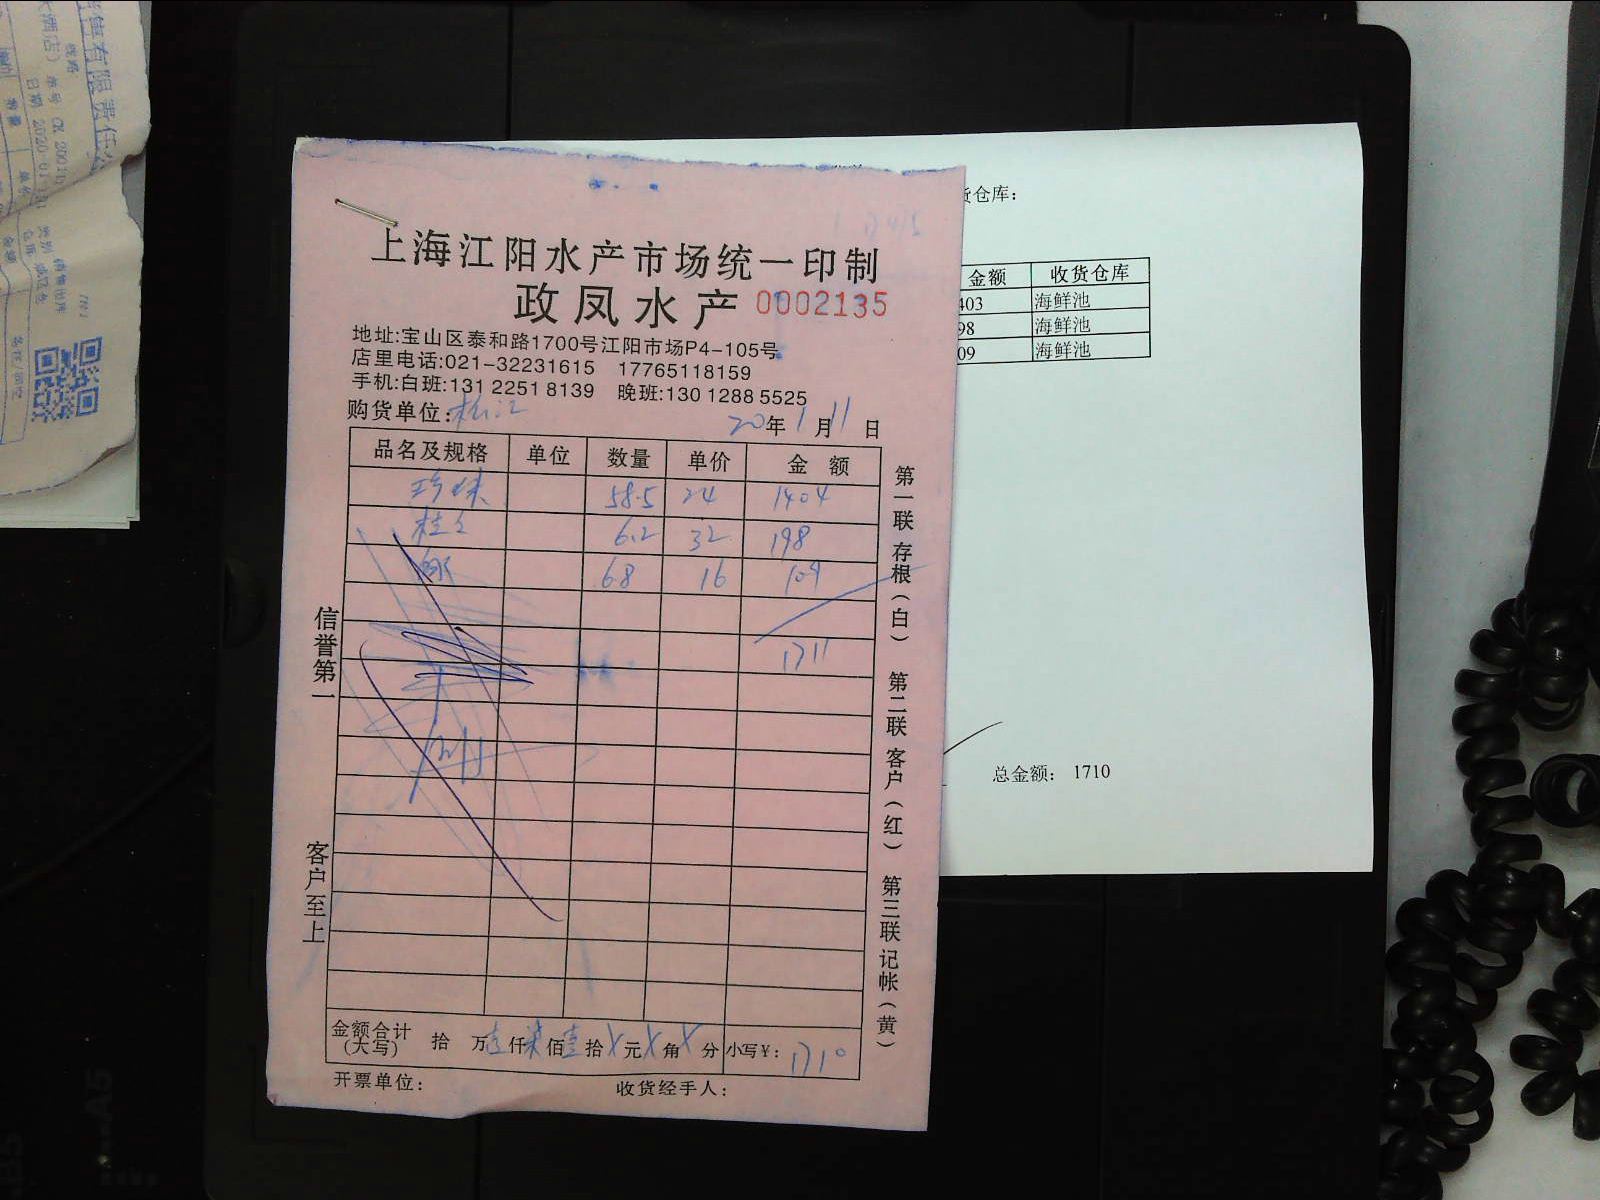 上海江阳水产市场统一印制
政凤水产 0002135
地址:宝山区泰和路1700号江阳市场P4-105号
店里电话:021-32231615 17765118159
手机:白班:131 2251 8139 晚班:130 1288 5525
购货单位:松江
20年1月11日
品名及规格 单位 数量 单价 金额
珍珠 58.5 24 1404
桂鱼 6.2 32 198
6.8 16 109
1711
金额合计(大写) 拾 万壹仟柒佰壹拾X元X角X分 小写¥: 1710
开票单位: 收货经手人:
信誉第一
客户至上
第一联 存根(白) 第二联 客户(红) 第三联 记帐(黄)
货仓库:
金额 收货仓库
403 海鲜池
98 海鲜池
09 海鲜池
总金额: 1710
售有限责任公
酒店)
日期 2020-01